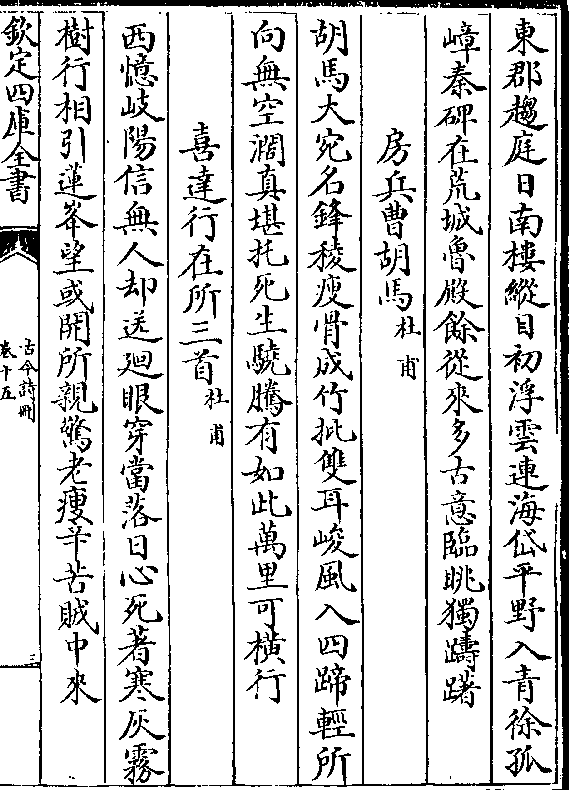 東郡趨庭日南樓縱目初浮雲連海岱平野入青徐孤
嶂秦碑在荒城魯殿餘從來多古意臨眺獨躊躇
房兵曹胡馬杜甫
胡馬大宛名鋒稜瘦骨成竹批雙耳峻風入四蹄輕所
向無空濶真堪托死生驍騰有如此萬里可橫行
喜達行在所三首杜甫
西憶岐陽信無人却送廻眼穿當落日心死著寒灰霧
樹行相引蓮峯望或開所親驚老瘦辛苦賊中來
欽定四庫全書
古今詩刪
卷十五
三